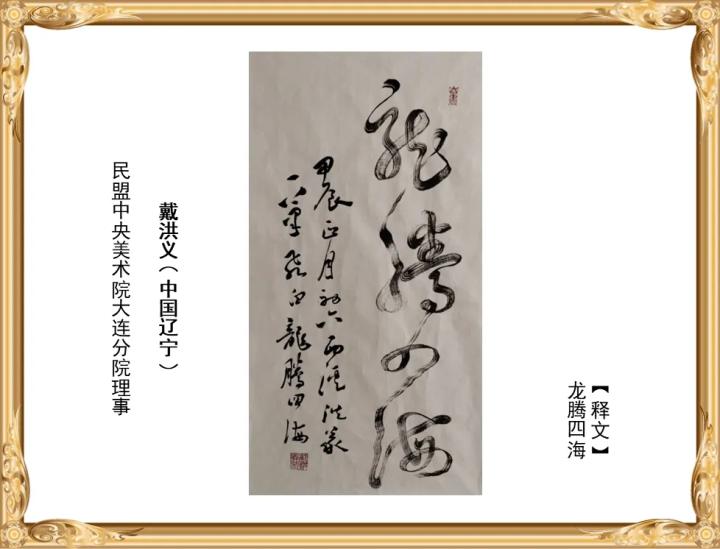 【释文】
龙腾四海
龙腾四海
甲辰正月初六西溪洪義
一筆飛白龍騰四海
戴洪义（中国辽宁）
民盟中央美术院大连分院理事